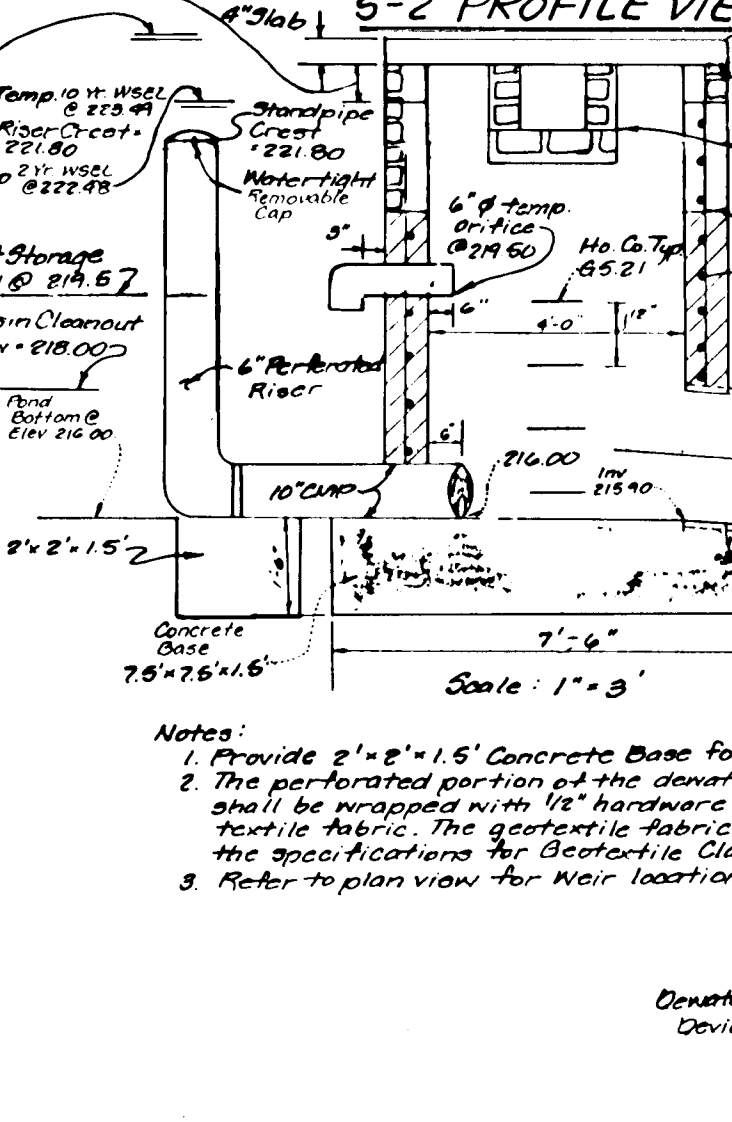 S-2 PROFILE VIE
4" Slab
Temp. 10 Yr. WSEL
@ 223.49
Riser Crest =
221.80
2 Yr. WSEL
@ 222.48
Standpipe
Crest
= 221.80
Watertight
Removable
Cap
6" Ø temp.
orifice
@ 219.50
Ho. Co. Typ.
G5.21
3"
t Storage
@ 219.5
6"
4'-0"
1'2"
sin Cleanout
v = 218.00
6" Perforated
Riser
Pond
Bottom @
Elev 216.00
6"
216.00
Inv
215.90
10" CMP
2' x 2' x 1.5'
Concrete
Base
7.5' x 7.5' x 1.5'
7'-6"
Scale : 1" = 3'
Notes:
1. Provide 2' x 2' x 1.5' Concrete Base fo
2. The perforated portion of the dewat
shall be wrapped with 1/2" hardware
textile fabric. The geotextile fabric
the specifications for Geotextile Cla
3. Refer to plan view for Weir location
Dewate
Devic